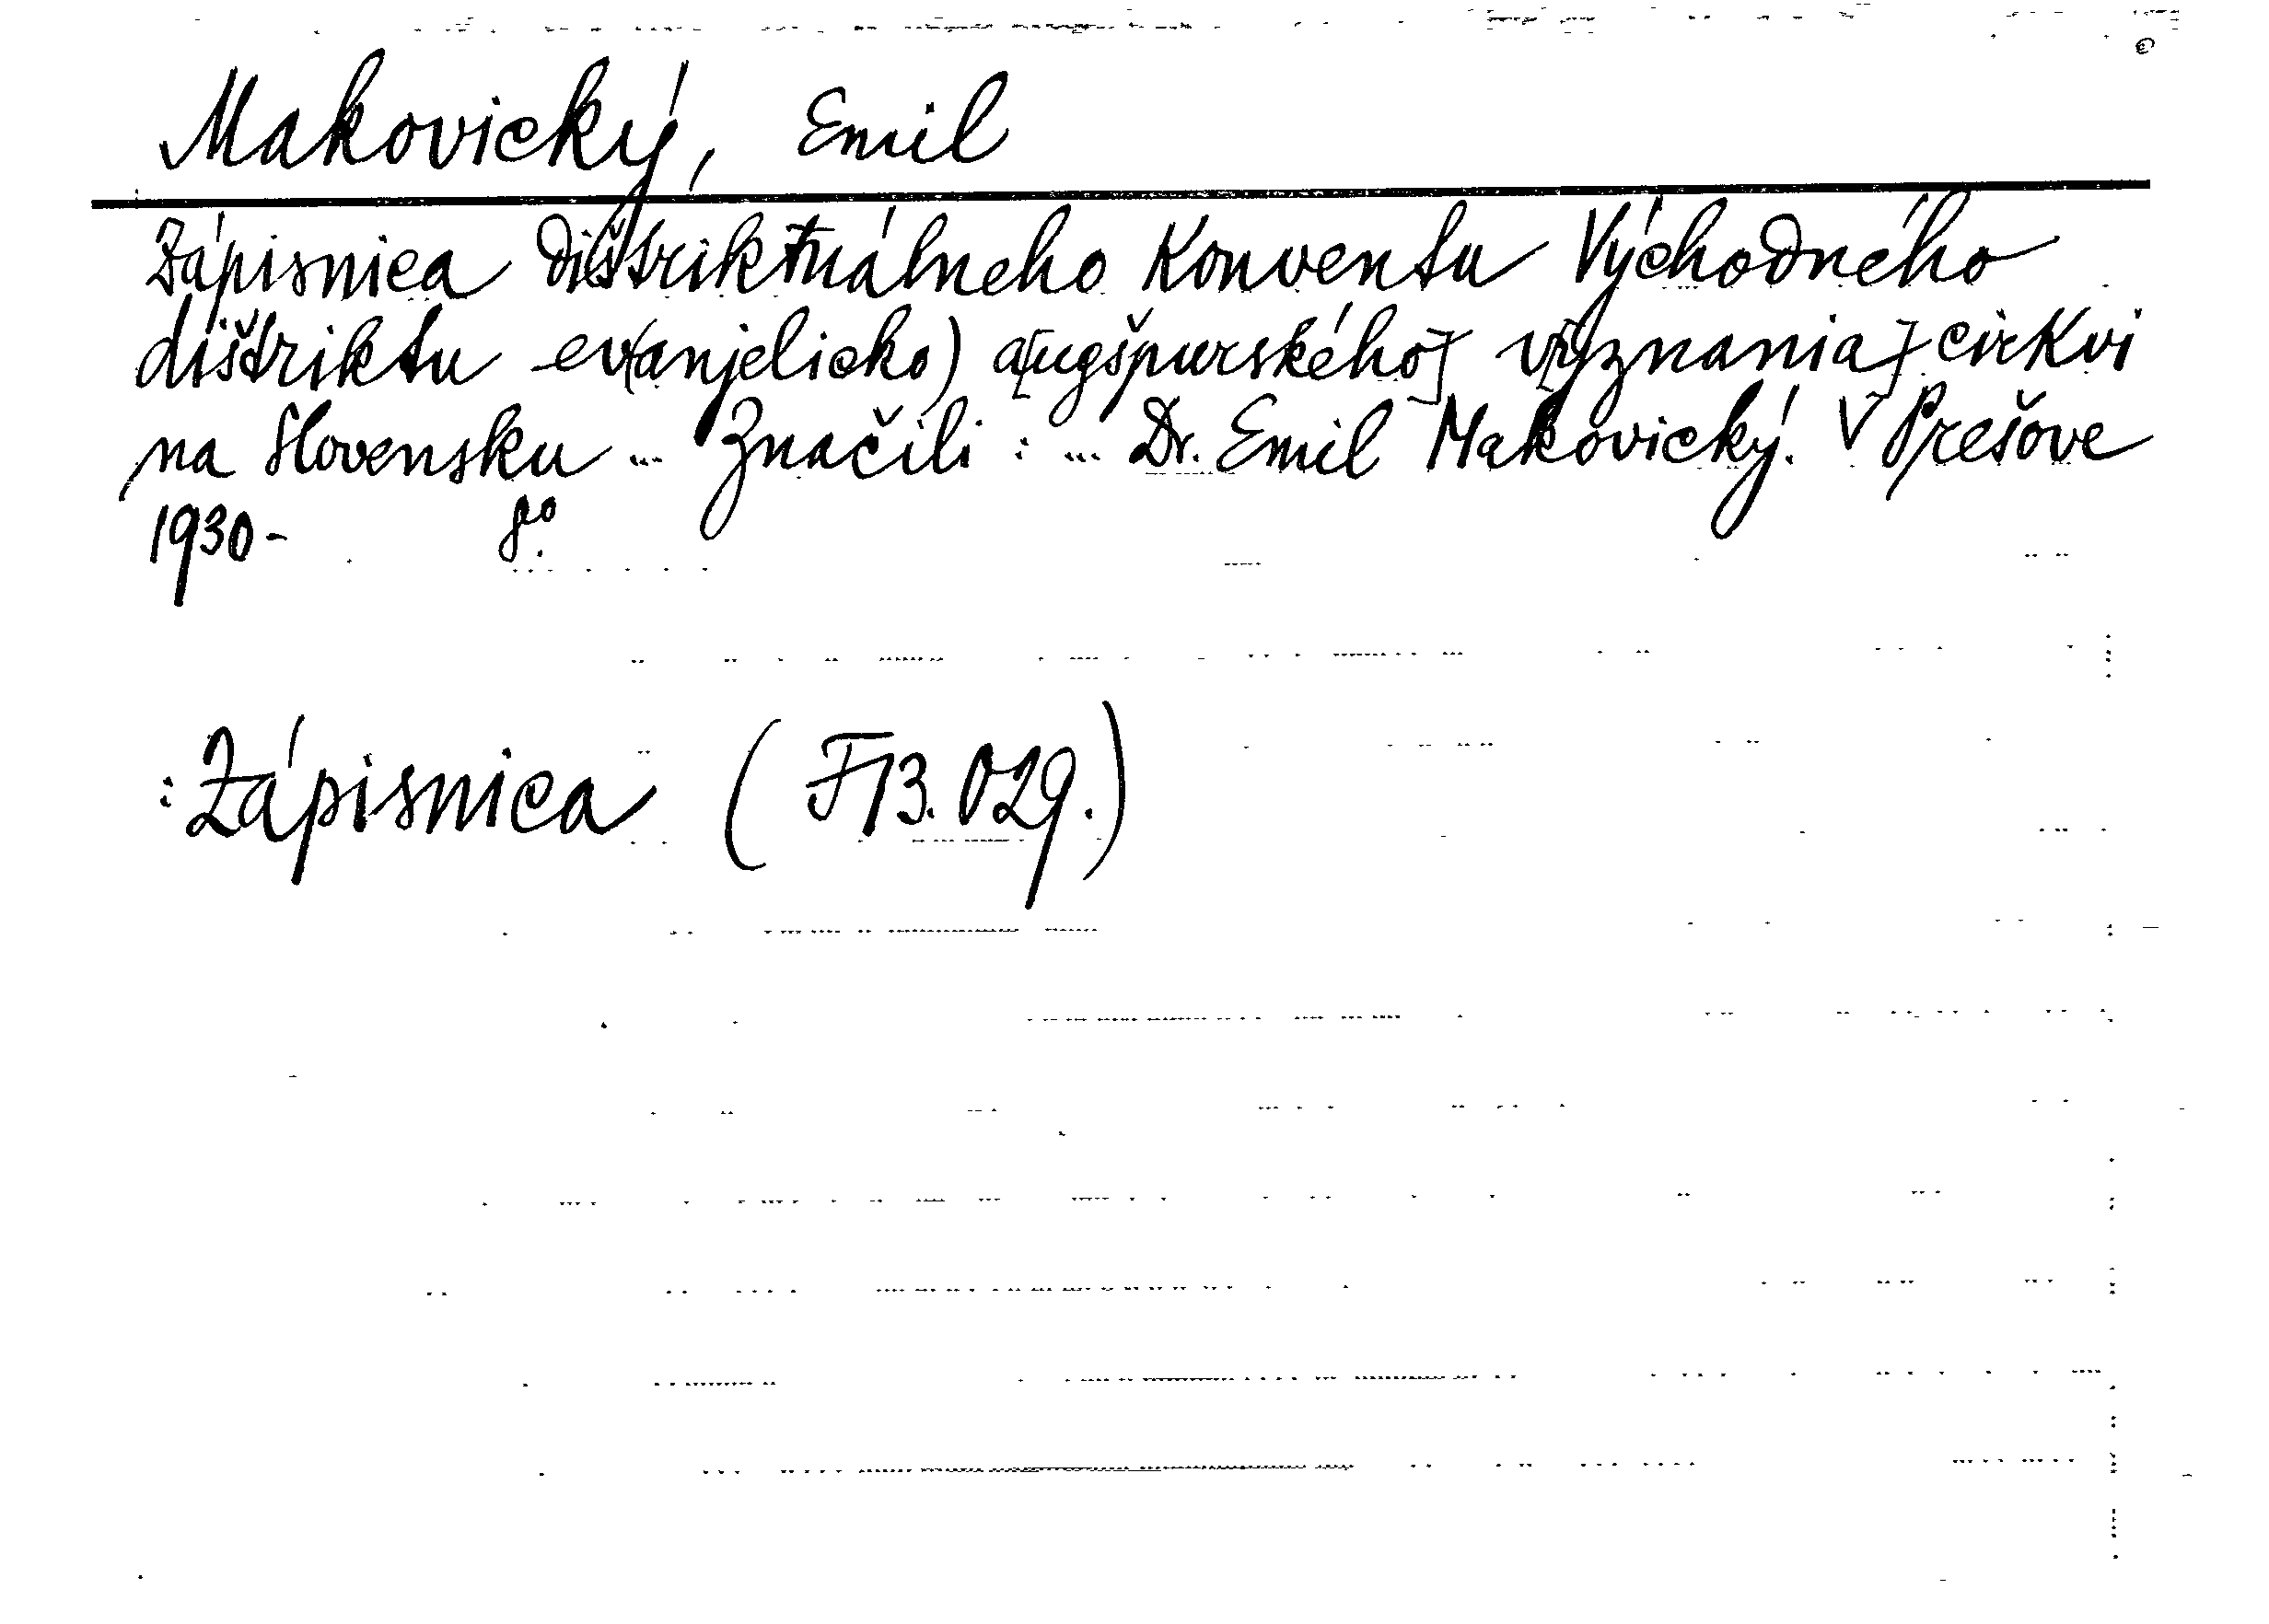 Makovický, Emil
Zápisnica dištriktuálneho Konventu Východného
dištriktu ev(anjelicko) a[ugšpurského] v[yznania] cirkvi
na Slovensku ... Značili : ... Dr. Emil Makovický. V Prešove
1930- 8º.
: Zápisnica (F13.029.)